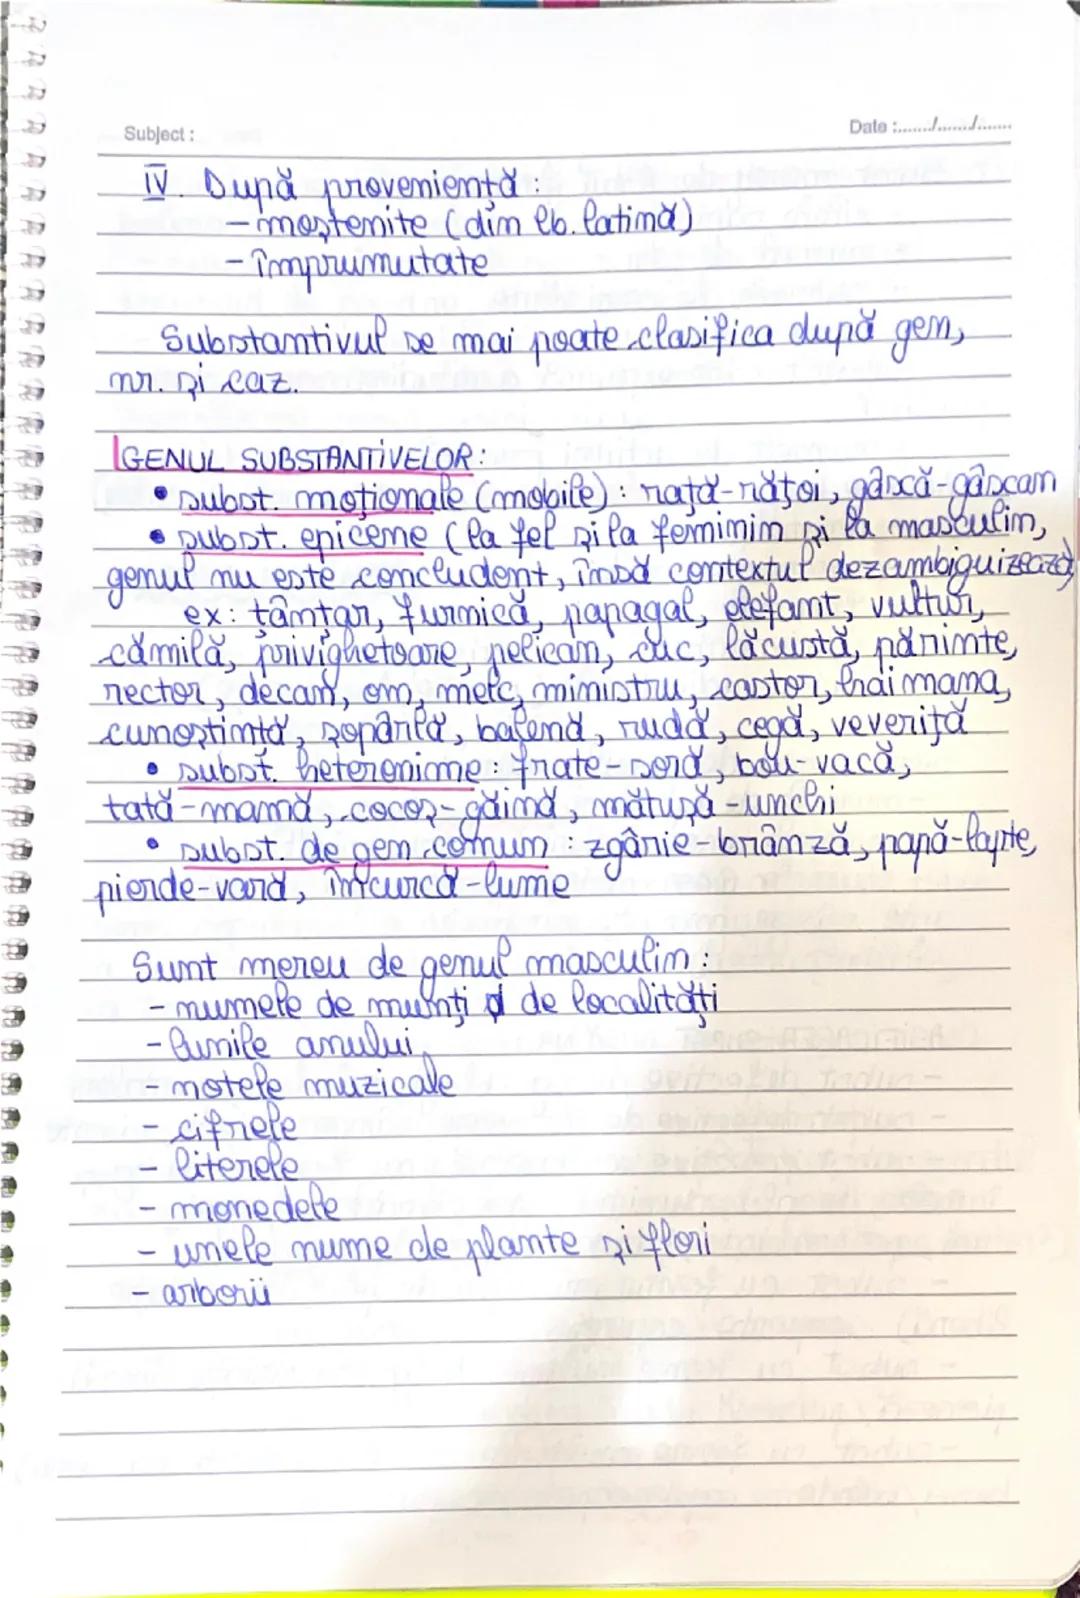 Subject :
Date :......./......./.......
IV. După proveniență :
- moștenite (din lb. latină)
- împrumutate
Substantivul se mai poate clasifica după gen,
nr. și caz.
GENUL SUBSTANTIVELOR:
• subst. moționale (mobile) : rață-rățoi, gâscă-gâscan
• subst. epicene (la fel și la feminin și la masculin,
genul nu este concludent, însă contextul dezambiguizează)
ex: țânțar, furnică, papagal, elefant, vultur,
cămilă, privighetoare, pelican, cuc, lăcustă, părinte,
rector, decan, om, melc, ministru, castor, haimana,
cunoștință, șopârlă, balenă, rudă, cegă, veveriță
• subst. heteronime : frate-soră, bou-vacă,
tată-mamă, cocoș-găină, mătușă-unchi
• subst. de gen comun : zgârie-brânză, papă-lapte,
pierde-vară, încurcă-lume
Sunt mereu de genul masculin :
- numele de munți și de localități
- lunile anului
- notele muzicale
- cifrele
- literele
- monedele
- unele nume de plante și flori
- arborii